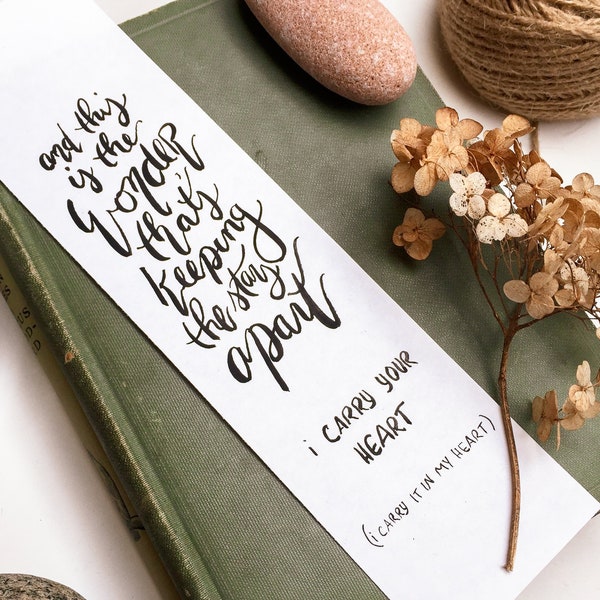 and this
is the
wonder
that's
keeping
the stars
apart
i CARRY YOUR
HEART
(i CARRY IT IN MY HEART)